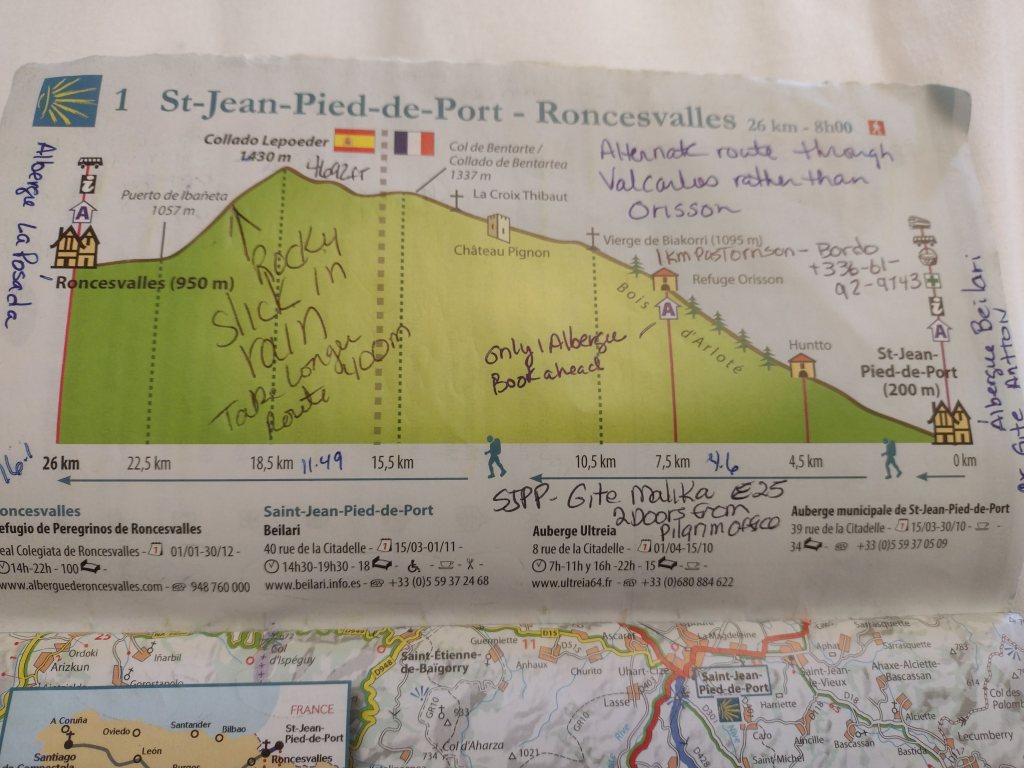 1 St-Jean-Pied-de-Port - Roncesvalles 26 km - 8h00
Collado Lepoeder
1430 m
4692ft
Col de Bentarte /
Collado de Bentartea
1337 m
Alternate route through
Valcarlos rather than
Orisson
Albergue La Posada
Puerto de Ibañeta
1057 m
La Croix Thibaut
Château Pignon
Vierge de Biakorri (1095 m)
1km past orrison - Bordo
+336-61-
92-9743
Refuge Orisson
A
Roncesvalles (950 m)
Rocky
slick in
rain
Take Longer 400m
Route
A
Bois d'Arloté
only 1 Albergue
Book ahead
Huntto
A
St-Jean-
Pied-de-Port
(200 m)
Albergue Beilari
or Gite Antton
26 km
22,5 km
18,5 km
11.49
15,5 km
10,5 km
7,5 km
4.6
4,5 km
0 km
SJPP - Gite Malika €25
2 Doors from
Pilgrim office
oncesvalles
efugio de Peregrinos de Roncesvalles
eal Colegiata de Roncesvalles - 1 01/01-30/12 -
14h-22h - 100 -
www.alberguederoncesvalles.com - 948 760 000
Saint-Jean-Pied-de-Port
Beilari
40 rue de la Citadelle - 1 15/03-01/11 -
14h30-19h30 - 18 - - - -
www.beilari.info.es - +33 (0)5 59 37 24 68
Auberge Ultreia
8 rue de la Citadelle - 1 01/04-15/10
7h-11h y 16h -22h - 15 - -
www.ultreia64.fr - +33 (0)680 884 622
Auberge municipale de St-Jean-Pied-de-Port
39 rue de la Citadelle - 1 15/03-30/10 - -
34 - +33 (0)5 59 37 05 09
Ordoki
25
Arizkun
Iñarbil
Gorostapolo
Col
d'Ispéguy
D948
Saint-Étienne-
de-Baïgorry
Guermiette
11
D15
D515
Anhaux
Churito
Ascarat
Uhart-Cize
La Magdeleine
Lasse
D401
Saint-Jean-
Pied-de-Port
Aphat
Saint-Jean-
le-Vieux
Sarrasquette
Sarrasquette
783
Ahaxe-Alciette-
Bascassan
614
Col des
Harriette
D18
Alciette
Lecumberry
Bascassan
Bastida
Caro
Aincille
Saint-Michel
D301
D428
GR10
GR10
933
734
Col d'Aharza
1021
FRANCE
A Coruña
Santander
Oviedo
Bilbao
St-Jean-
Pied-de-Port
Roncesvalles
Santiago
León
Burgos